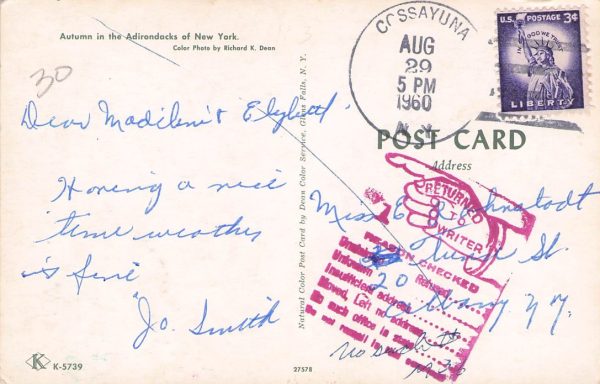 Autumn in the Adirondacks of New York.
Color Photo by Richard K. Dean
30
Dear Madeline &
Having a nice
time weather
is fine
Jo. Smith
Natural Color Post Card by Dean Color Service, Glens Falls, N. Y.
COSSAYUNA
AUG
29
5 PM
1960
N.Y.
U.S. POSTAGE 3¢
IN GOD WE TRUST
LIBERTY
POST CARD
Address
Miss E.
St.
20
Albany N.Y.
RETURNED
TO
WRITER
REASON CHECKED
Unknown
Refused
Insufficient address
Moved, Left no address
No such office in state
No such
K
K-5739
27578